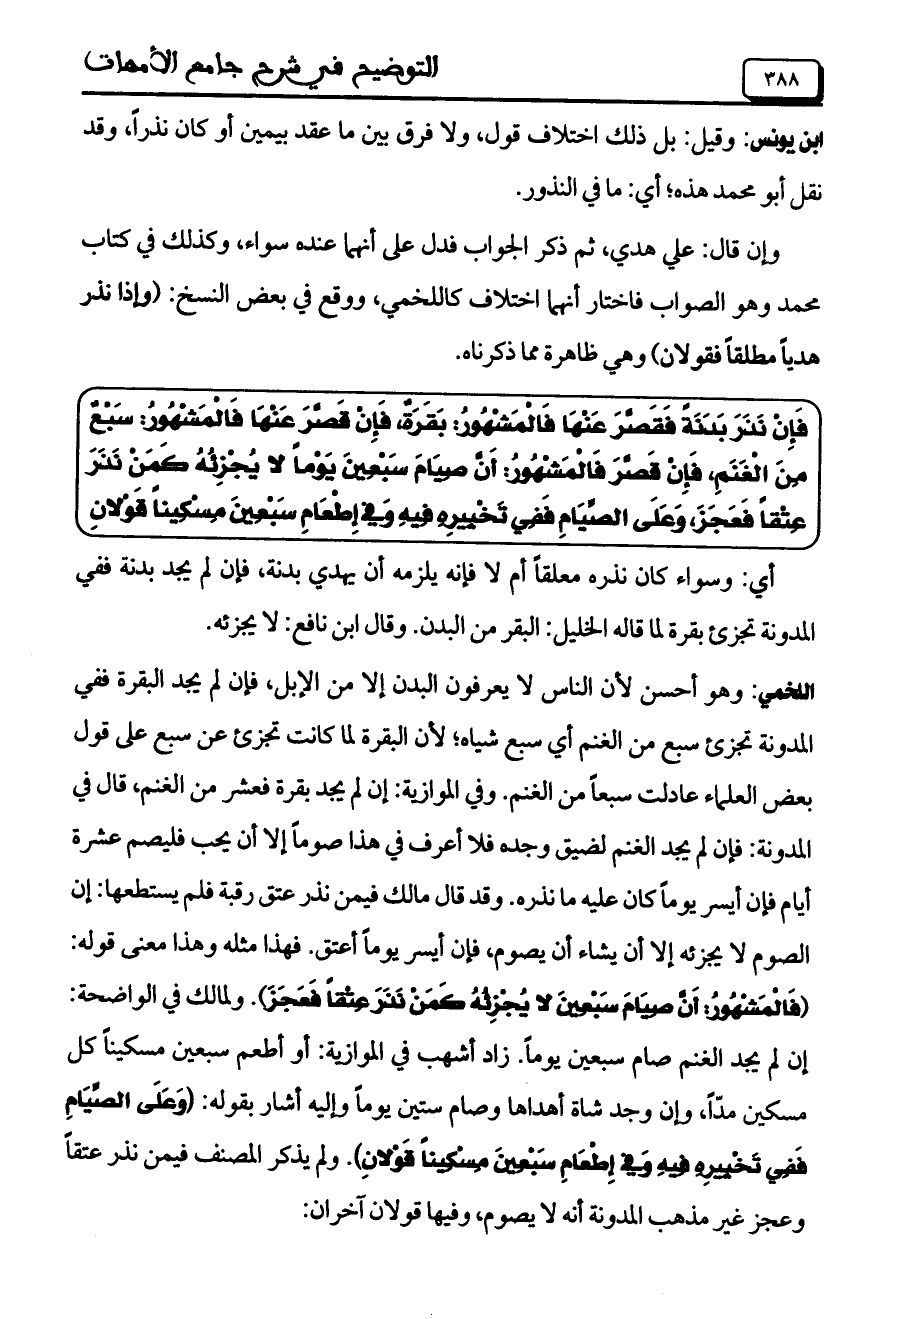 ٣٨٨
التوضيح في شرح جامع الأمهات
ابن يونس: وقيل: بل ذلك اختلاف قول، ولا فرق بين ما عقد بيمين أو كان نذراً، وقد
نقل أبو محمد هذه؛ أي: ما في النذور.
وإن قال: علي هدي، ثم ذكر الجواب فدل على أنهما عنده سواء، وكذلك في كتاب
محمد وهو الصواب فاختار أنهما اختلاف كاللخمي، ووقع في بعض النسخ: (وإذا نذر
هدياً مطلقاً فقولان) وهي ظاهرة مما ذكرناه.
فَإِنْ نَذَرَ بَدَنَةً فَقَصَّرَ عَنْهَا فَالْمَشْهُورُ: بَقَرَةٌ، فَإِنْ قَصَّرَ عَنْهَا فَالْمَشْهُورُ: سَبْعٌ
مِنَ الْغَنَمِ، فَإِنْ قَصَّرَ فَالْمَشْهُورُ: أَنَّ صِيَامَ سَبْعِينَ يَوْماً لا يُجْزِئُهُ كَمَنْ نَذَرَ
عِتْقاً فَعَجَزَ، وَعَلَى الصِّيَامِ فَفِي تَخْيِيرِهِ فِيهِ وَفِي إِطْعَامِ سَبْعِينَ مِسْكِيناً قَوْلانِ
أي: وسواء كان نذره معلقاً أم لا فإنه يلزمه أن يهدي بدنة، فإن لم يجد بدنة ففي
المدونة تجزئ بقرة لما قاله الخليل: البقر من البدن. وقال ابن نافع: لا يجزئه.
اللخمي: وهو أحسن لأن الناس لا يعرفون البدن إلا من الإبل، فإن لم يجد البقرة ففي
المدونة تجزئ سبع من الغنم أي سبع شياه؛ لأن البقرة لما كانت تجزئ عن سبع على قول
بعض العلماء عادلت سبعاً من الغنم. وفي الموازية: إن لم يجد بقرة فعشر من الغنم، قال في
المدونة: فإن لم يجد الغنم لضيق وجده فلا أعرف في هذا صوماً إلا أن يحب فليصم عشرة
أيام فإن أيسر يوماً كان عليه ما نذره. وقد قال مالك فيمن نذر عتق رقبة فلم يستطعها: إن
الصوم لا يجزئه إلا أن يشاء أن يصوم، فإن أيسر يوماً أعتق. فهذا مثله وهذا معنى قوله:
(فَالْمَشْهُورُ: أَنَّ صِيَامَ سَبْعِينَ لا يُجْزِئُهُ كَمَنْ نَذَرَ عِتْقاً فَعَجَزَ). ولمالك في الواضحة:
إن لم يجد الغنم صام سبعين يوماً. زاد أشهب في الموازية: أو أطعم سبعين مسكيناً كل
مسكين مدّاً، وإن وجد شاة أهداها وصام ستين يوماً وإليه أشار بقوله: (وَعَلَى الصِّيَامِ
فَفِي تَخْيِيرِهِ فِيهِ وَفِي إِطْعَامِ سَبْعِينَ مِسْكِيناً قَوْلانِ). ولم يذكر المصنف فيمن نذر عتقاً
وعجز غير مذهب المدونة أنه لا يصوم، وفيها قولان آخران: